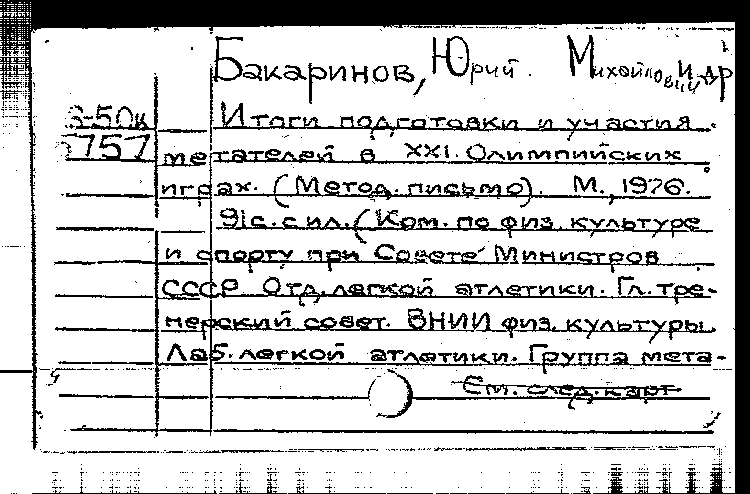 Бакаринов, Юрий Михайлович и др
Б-50к
757
Итоги подготовки и участия
метателей в XXI. Олимпийских
играх. (Метод. письмо). М., 1976.
91с. с ил. (Ком. по физ. культуре
и спорту при Совете Министров
СССР Отд. легкой атлетики. Гл. тре-
нерский совет. ВНИИ физ. культуры
Лаб. легкой атлетики. Группа мета-
См. след. карт